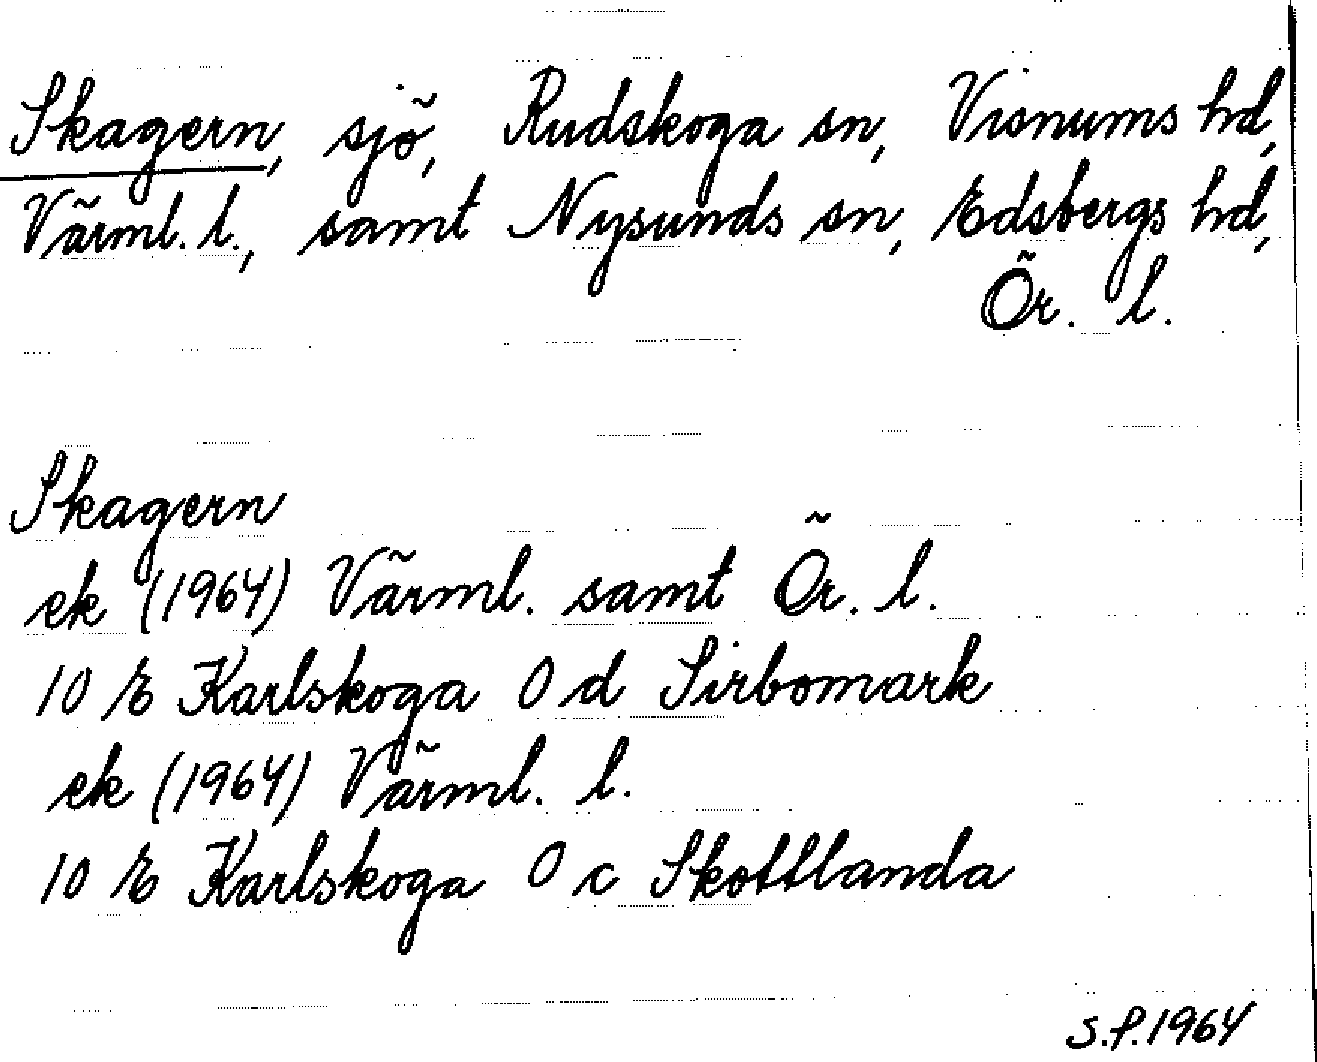 Skagern, sjö, Rudskoga sn, Visnums hd,
Värml. l., samt Nysunds sn, Edsbergs hd,
Ör. l.
Skagern
ek (1964) Värml. samt Ör. l.
10 E Karlskoga 0 d Sirbomark
ek (1964) Värml. l.
10 E Karlskoga 0 c Skottlanda
S.P. 1964